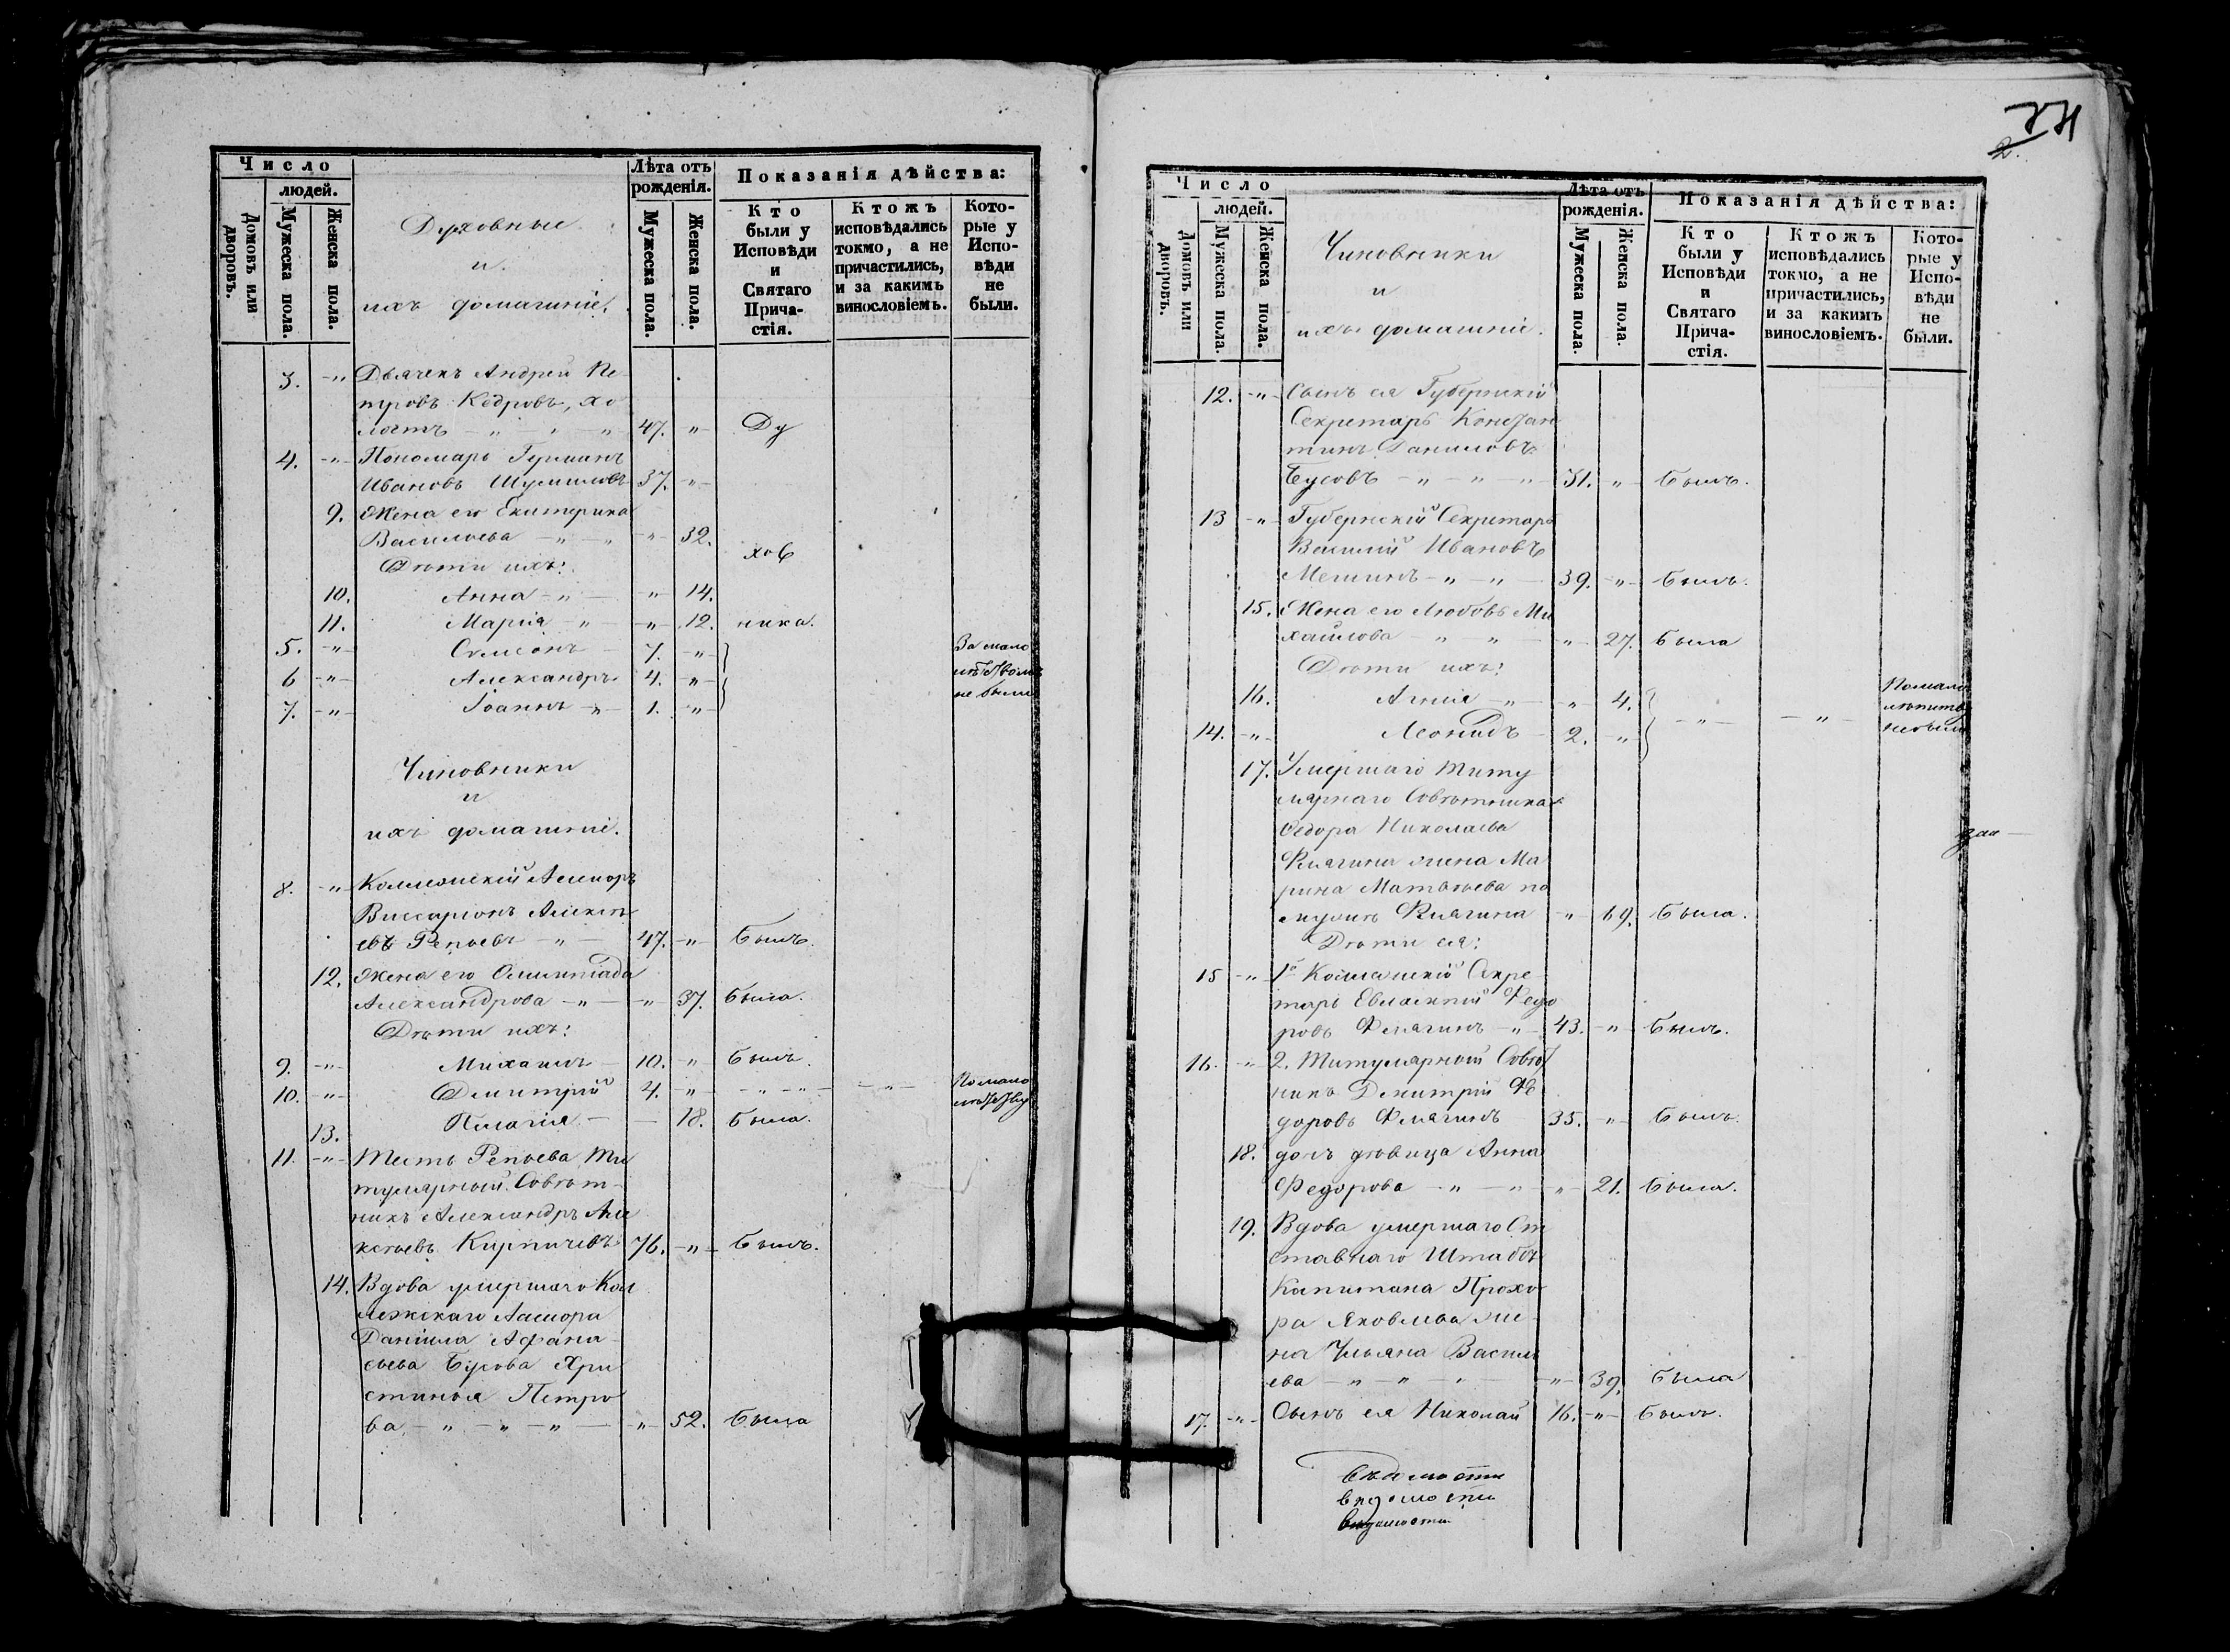 Число
людей.
Домовъ или дворовъ.
Мужеска пола.
Женска пола.
Духовные
и
ихъ домашніе.
Лѣта отъ рожденія.
Мужеска пола.
Женска пола.
Показанія дѣйства:
Кто были у Исповѣди и Святаго Прича-стія.
Ктожъ исповѣдались токмо, а не причастились, и за какимъ винословіемъ.
Кото-рые у Испо-вѣди не были.
3. -"- Дьячекъ Андрей Пе
тровъ Кедровъ, хо
лостъ - " - " 47. " Ду
4. -"- Пономарь Германъ
Ивановъ Шумиловъ 37. -"-
9. Жена его Екатерина
Васильева - " - " -"- 32.
хов
Дѣти ихъ:
10. Анна - " - " 14.
11. Марія - " -"- 12. ника.
5. -"- Симеонъ - 7. -"- За мало
6 -"- Александръ 4. -"- лѣтствомъ
7. -"- Іоаннъ -"- 1. -"- не были
Чиновники
и
ихъ домашніе.
8. -"- Коллежскій Ассесоръ
Виссаріонъ Алексѣ
евъ Репьевъ - " - 47. -"- былъ.
12. Жена его Олимпіада
Александрова -"- " 37. была.
Дѣти ихъ:
9. -"- Михаилъ - 10. " былъ.
10. -"- Димитрій 4. -"- -"-"- -"- По мало
лѣтству
13. Пелагія - - 18. была.
11. -"- Тесть Репьева Ти
тулярный Совѣт-
никъ Александръ Але
ксѣевъ Кирпичевъ 76. -"- былъ.
14. Вдова умершаго Кол
лежскаго Ассесора
Даніила Афана-
сьева Бусова Хри
стинья Петро
ва - " - " - " - " 52. была
24
2.
Число
людей.
Домовъ или дворовъ.
Мужеска пола.
Женска пола.
Чиновники
и
ихъ домашніе.
Лѣта отъ рожденія.
Мужеска пола.
Женска пола.
Показанія дѣйства:
Кто были у Исповѣди и Святаго Прича-стія.
Ктожъ исповѣдались токмо, а не причастились, и за какимъ винословіемъ.
Кото-рые у Испо-вѣди не были.
12. -"- Сынъ ея Губернскій
Секретарь Констан
тинъ Даниловъ
Бусовъ - " - " - " 31. " былъ.
13 -"- Губернскій Секретарь
Василій Ивановъ
-"- -"- 39. -"- былъ.
15. Жена его Любовь Ми
хайлова - " - " - " 27. была
Дѣти ихъ:
16. -"- " 4. По мало
14. -"- Леонидъ - 2. -"- -"- -"- лѣтству
не были
17. Умершаго Титу
лярнаго Совѣтника
Федора Николаева
Флягина жена Ма
рина Матвѣева по
мужѣ Флягина -"- 69. была.
Дѣти ея:
15 -"- 1е Коллежскій Секре-
тарь Евлампій Федо
ровъ Флягинъ -"- 43. -"- былъ.
16. -"- 2. Титулярный Совѣт
никъ Димитрій Фе
доровъ Флягинъ 35. -"- былъ.
18. дочь дѣвица Анна
Федорова - " - " " 21. была.
19. Вдова умершаго От
ставнаго Штабсъ
Капитана Прохо
ра Яковлева же-
на Ульяна Василь
ева - " - " - " -"- 39. была
17. -"- Сынъ ея Николай 16. -"- былъ.
вѣдомости
вѣдомости
вѣдомости